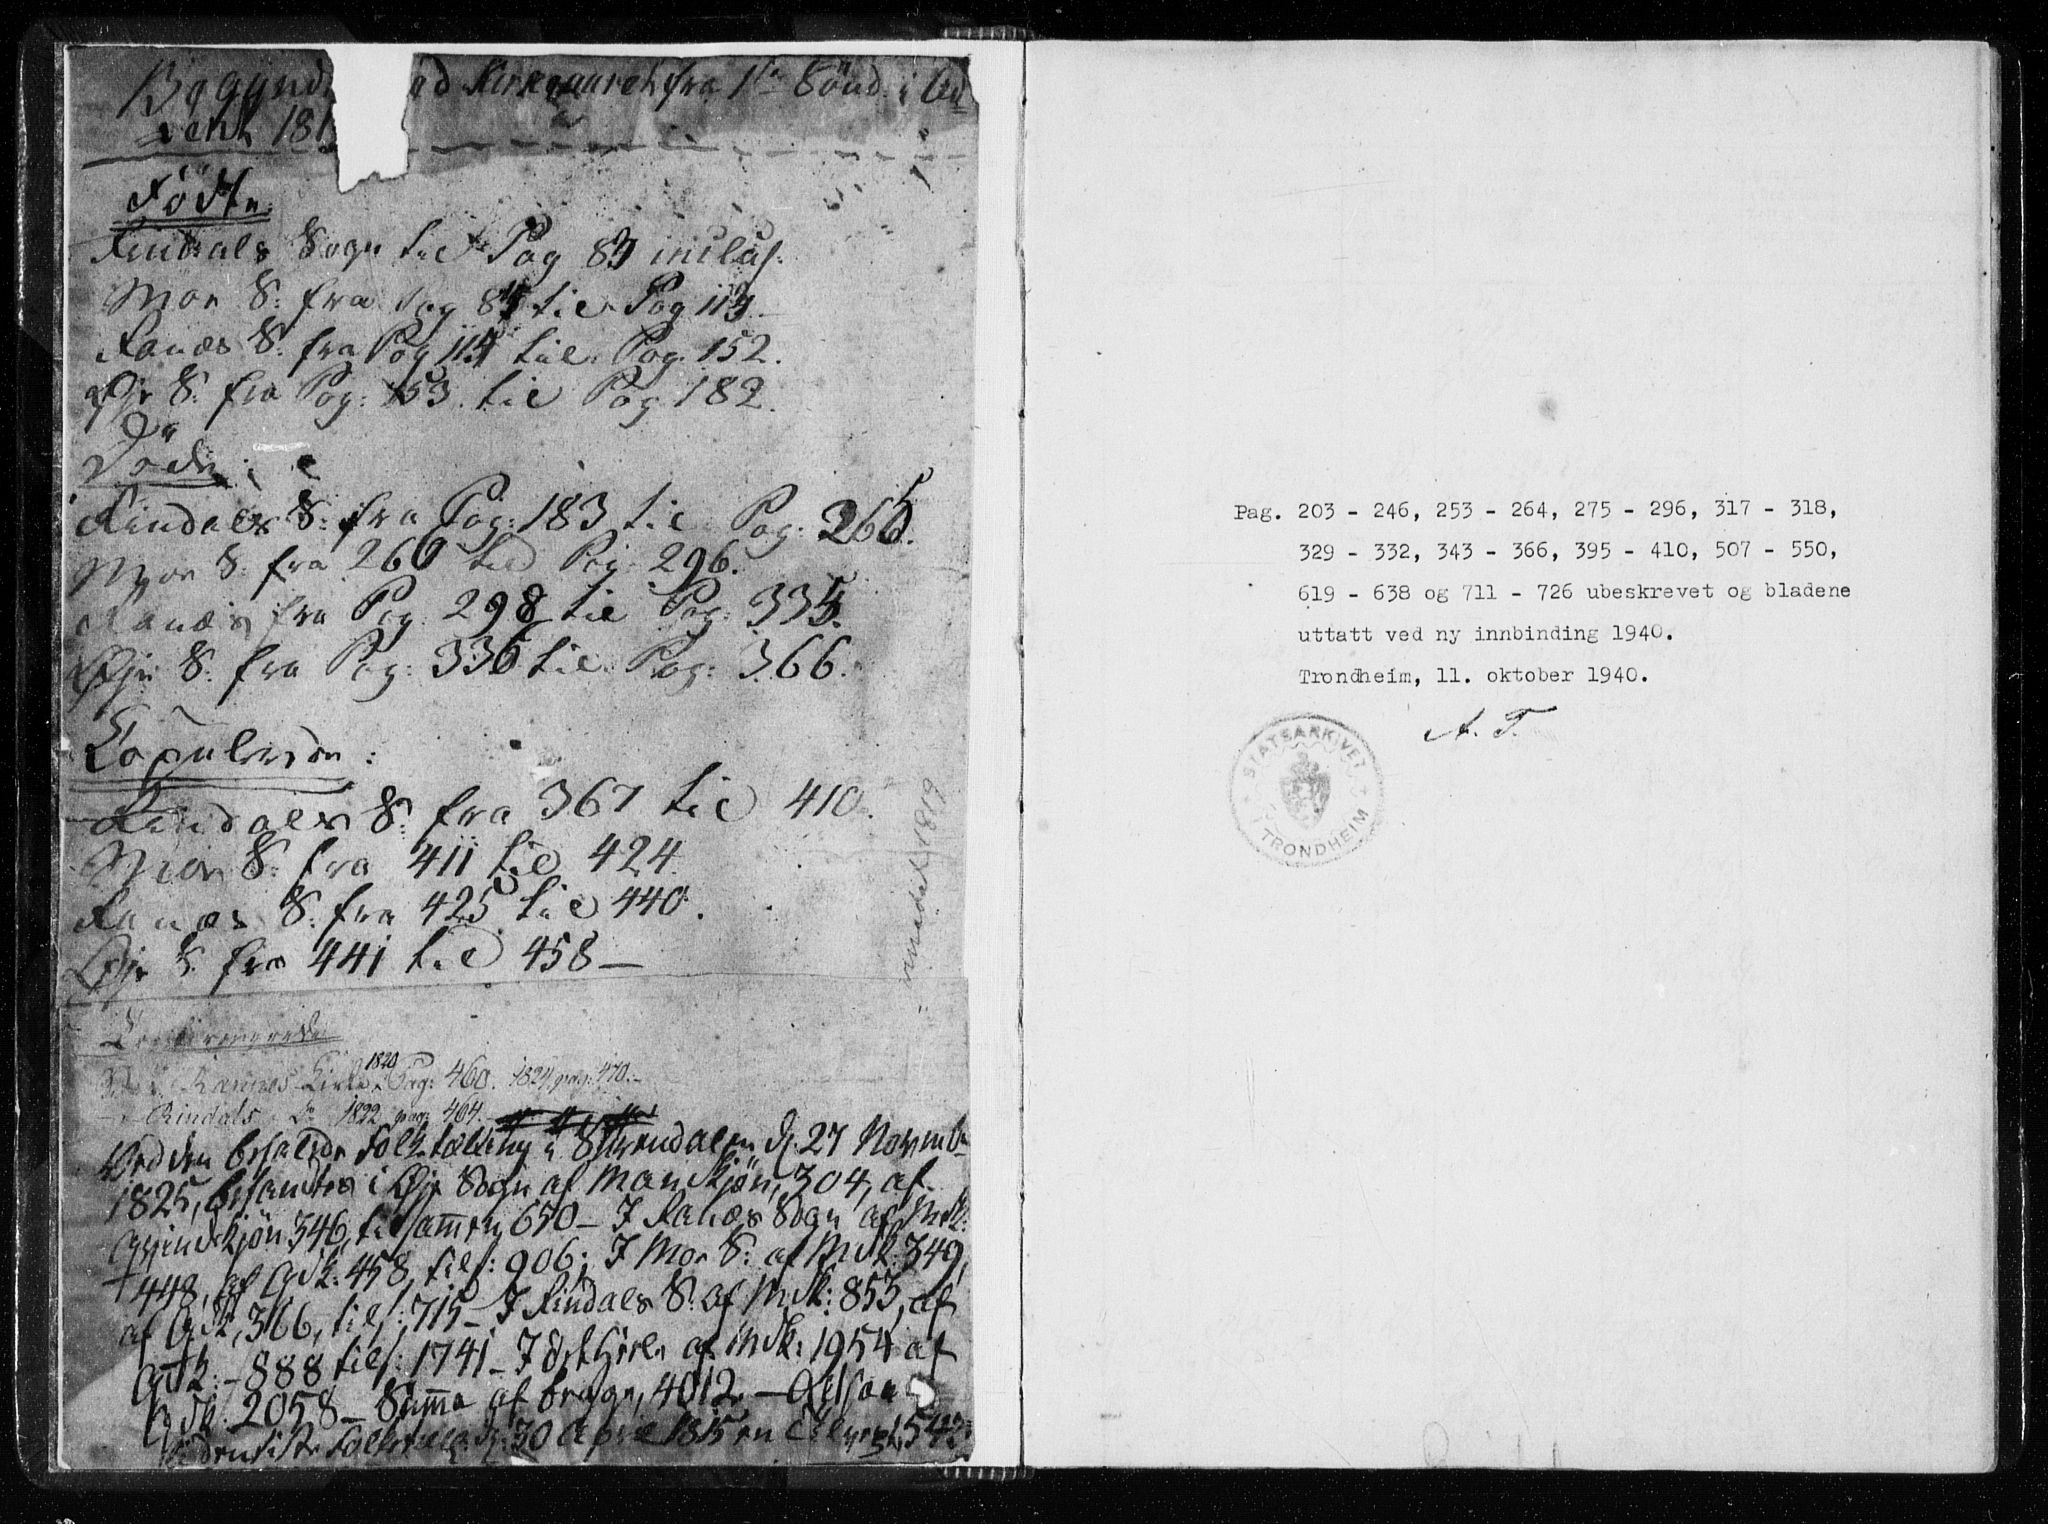 Begynd ad Kirkeaaret fra 1ste Sönd. i Ad
vent 181
Födte.
Rindals Sogn til Pag 83 inclus.
Moe S: fra Pag 84 til Pag 113
Ranæs S: fra Pag 114 til Pag. 152.
Øje S: fra Pag: 153 til Pag 182.
Döde:
Rindals S: fra Pag: 183 til Pag: 265.
Moe S: fra 266 til Pag: 296.
Ranæs fra Pag. 298 til Pag: 335.
Øje S. fra Pag: 336 til Pag: 366.
Copulerede:
Rindals S: fra 367 til 410.
Moe S: fra 411 til 424.
Ranæs S: fra 425 til 440.
Øje S. fra 441 til 458 —
Confirmerede
Ranæs Kirke 1820 Pag: 460. 1824. pag: 470. –
Rindals Do 1822 pag: 464.
Ved den befalede Folketælling i Surendalen d. 27 Novemb
1825, befandtes i Øje Sogn af Mandkjön, 304, af
Qvindekjön 346, tilsammen 650 – I Ranæs Sogn af Mk:
448, af Qdk: 458, tils: 906; I Moe S: af Mdk: 349,
af Qdk, 366, tils: 715 – I Rindals S: af Mdk: 853, af
Qdk – 888 tils: 1741 – I det hele af Mdk: 1954 af
Qdk. 2058 – Summa af begge, 4012 –
siden siste Folket d: 30 April 1815 en Tilvext, 542
rinadal 1819
Pag. 203 - 246, 253 - 264, 275 - 296, 317 - 318,
329 - 332, 343 - 366, 395 - 410, 507 - 550,
619 - 638 og 711 - 726 ubeskrevet og bladene
uttatt ved ny innbinding 1940.
Trondheim, 11. oktober 1940.
A. T.
STATSARKIVET I TRONDHEIM